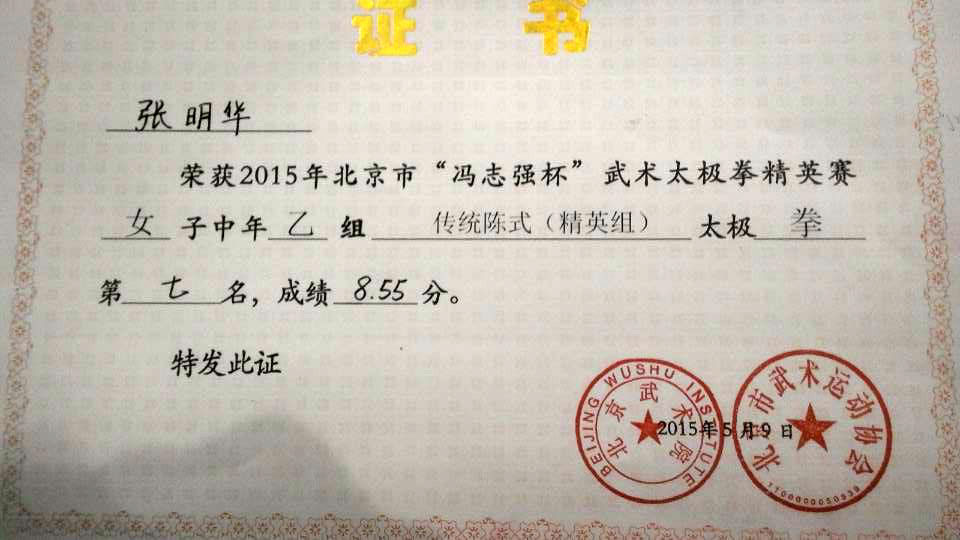 证书
张明华
荣获2015年北京市“冯志强杯”武术太极拳精英赛
女子中年乙组 传统陈式（精英组） 太极拳
第七名，成绩8.55分。
特发此证
BEIJING WUSHU INSTITUTE
北京武术院
北京市武术运动协会
2015年5月9日